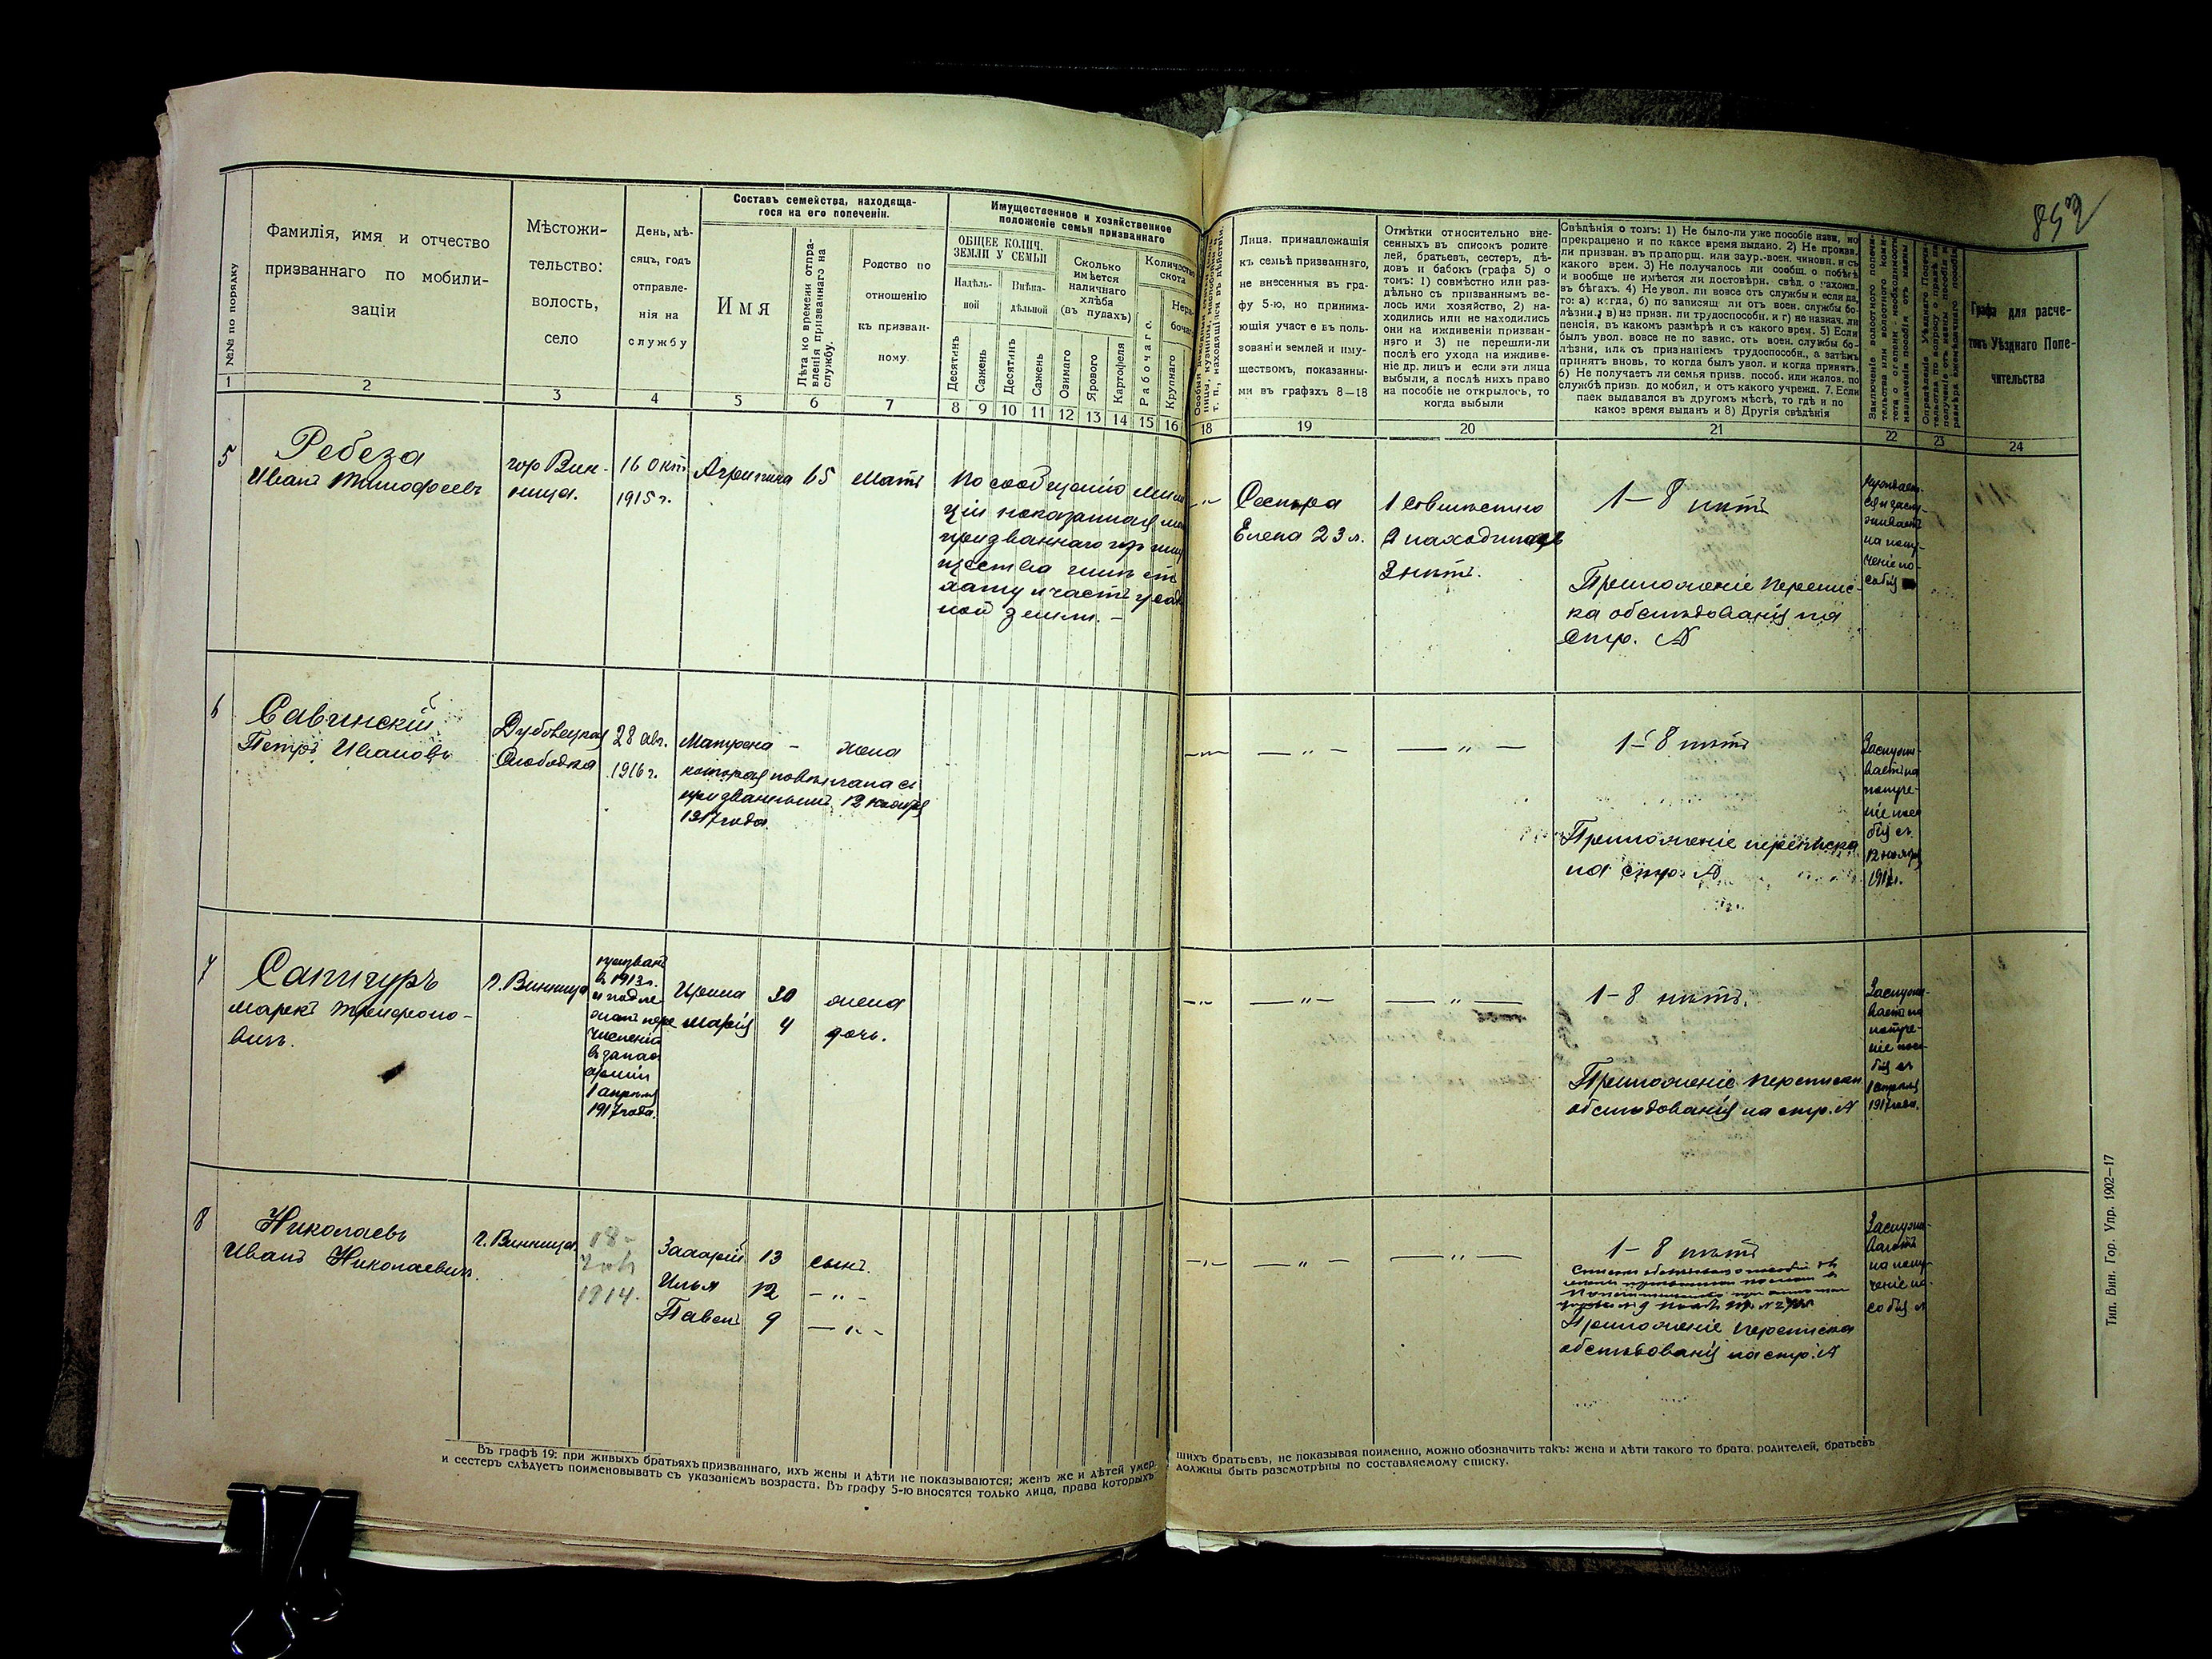 853
№№ по порядку
Фамилія, имя и отчество
призваннаго по мобили-
заціи
Мѣстожи-
тельство:
волость,
село
День, мѣ-
сяцъ, годъ
отправле-
нія на
службу
Составъ семейства, находяща-
гося на его попеченіи.
Имя
Лѣта ко времени отпра-
вленія призваннаго на
службу.
Родство по
отношенію
къ призван-
ному.
Имущественное и хозяйственное
положеніе семьи призваннаго
ОБЩЕЕ КОЛИЧ.
ЗЕМЛИ У СЕМЬИ
Надѣль-
ной
Внѣна-
дѣльной
Десятинъ
Сажень
Десятинъ
Сажень
Сколько
имѣется
наличнаго
хлѣба
(въ пудахъ)
Озимаго
Ярового
Картофеля
Количество
скота
Рабочаго
Крупнаго
Лица, принадлежащія
къ семьѣ призваннаго,
не внесенныя въ гра-
фу 5-ю, но принима-
ющія участіе въ поль-
зованіи землей и иму-
ществомъ, показанны-
ми въ графахъ 8—18
Отмѣтки относительно вне-
сенныхъ въ списокъ родите-
лей, братьевъ, сестеръ, дѣ-
довъ и бабокъ (графа 5) о
томъ: 1) совмѣстно или раз-
дѣльно съ призваннымъ ве-
лось ими хозяйство, 2) на-
ходились или не находились
они на иждивеніи призван-
наго и 3) не перешли-ли
послѣ его ухода на иждиве-
ніе др. лицъ и если эти лица
выбыли, а послѣ нихъ право
на пособіе не открылось, то
когда выбыли
Свѣдѣнія о томъ: 1) Не было-ли уже пособіе назн., но
прекращено и по какое время выдано. 2) Не произв.
ли призван. въ прапорщ. или заур.-воен. чиновн. и съ
какого врем. 3) Не получалось ли сообщ. о побѣгѣ
и вообще не имѣется ли достовѣрн. свѣд. о нахожд.
въ бѣгахъ. 4) Не увол. ли вовсе отъ службы и если да,
то: а) когда, б) по зависящ. ли отъ воен. службы бо-
лѣзни, в) не призн. ли трудоспособн. и г) не назнач. ли
пенсія, въ какомъ размѣрѣ и съ какого врем. 5) Если
былъ увол. вовсе не по завис. отъ воен. службы бо-
лѣзни, или съ признаніемъ трудоспособн., а затѣмъ
принятъ вновь, то когда былъ увол. и когда принятъ.
6) Не получаетъ ли семья призв. пособ. или жалов. по
службѣ призв. до мобил. и отъ какого учрежд. 7. Если
паек выдавался въ другомъ мѣстѣ, то гдѣ и по
какое время выданъ и 8) Другія свѣдѣнія
Графа для расче-
товъ Уѣзднаго Попе-
чительства
1 2 3 4 5 6 7 8 9 10 11 12 13 14 15 16 18 19 20 21 22 23 24
5
Ребеза
Иванъ Тимофеевъ
гор Вин-
ница.
16 Окт
1915 г.
Агрипина 65 мать
По сообщенію мили
ціи показанная
призваннаго
щества
хату и часть усад
ной земли. –
–"–
Сестра
Елена 23 л.
1 совмѣстно
2 находилась
3 нѣтъ.
1–8 нѣтъ
Приложеніе Перепис-
ка обслѣдованія на
стр. №
нуждает-
ся и заслу-
живаетъ
на полу-
ченіе по-
собія
6
Савинскій
Петръ Ивановъ
Дубовецкая
Слободка
28 авг.
1916 г.
Матрена – жена
которая повѣнчана съ
призваннымъ 12 ноября
1917 года.
–"– –"– –"–
1–8 нѣтъ
Приложеніе переписка
на стр. №
Заслужи-
ваетъ на
получе-
ніе посо
бія съ
12 ноября
1917 г.
7
Сапигуръ
Маркъ Трифоно-
вичъ.
г. Винница
призванъ
въ 1913 г.
и подле-
житъ пере
численію
въ запас
арміи
1 апрѣля
1917 года.
Ирина 30 жена
Марія 4 дочь.
–"– –"– –"–
1–8 нѣтъ.
Приложеніе переписки
обслѣдованія на стр. №
Заслужи-
ваетъ на
получе-
ніе посо-
бія съ
1 апрѣля
1917 года.
8
Николаевъ
Иванъ Николаевичъ.
г. Винница.
18–
1914.
Захарій 13 сынъ.
Илья 12 –"–
Павелъ 9 –"–
–"– –"– –"–
1–8 нѣтъ
Приложеніе переписка
обслѣдованія на стр. №
Заслужи-
ваютъ
на полу-
ченіе по-
собія
Въ графѣ 19: при живыхъ братьяхъ призваннаго, ихъ жены и дѣти не показываются; женъ же и дѣтей умер-шихъ братьевъ, не показывая поименно, можно обозначить такъ: жена и дѣти такого то брата, родителей, братьевъ
и сестеръ слѣдуетъ поименовывать съ указаніемъ возраста. Въ графу 5-ю вносятся только лица, права которыхъ должны быть разсмотрѣны по составляемому списку.
Тип. Вин. Гор. Упр. 1902—17